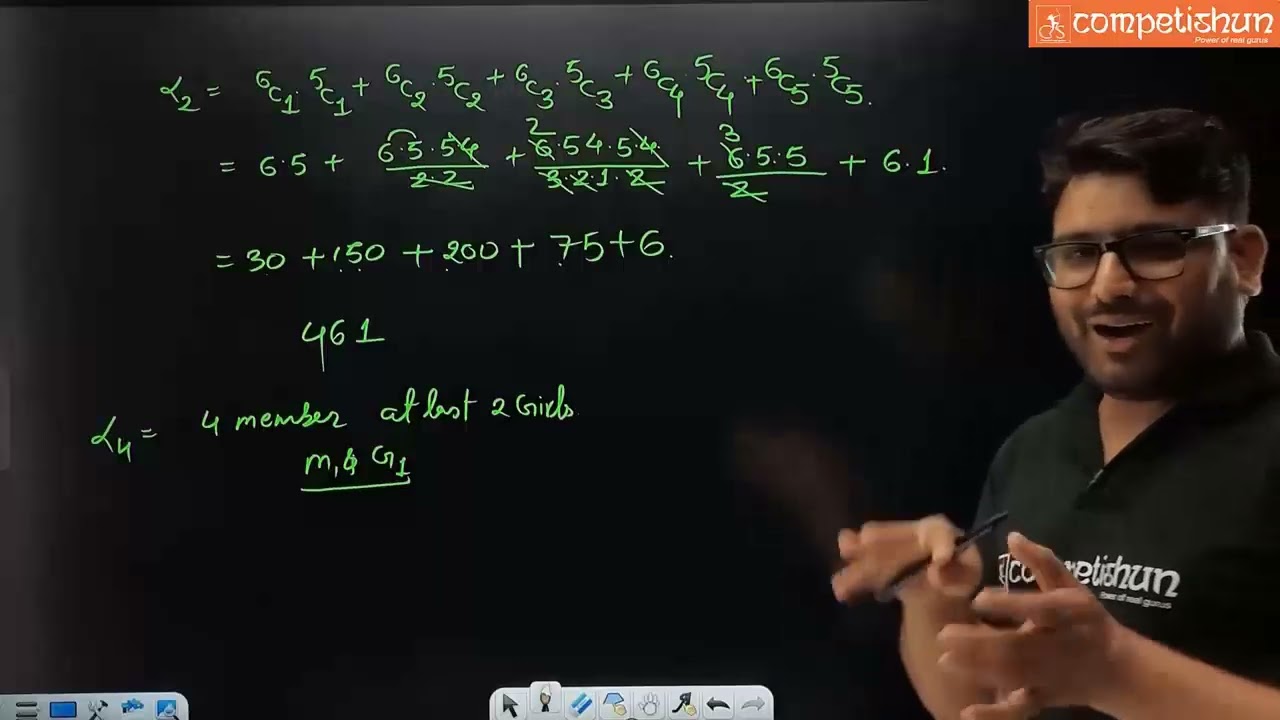 competishun
Power of real gurus
α₂ = ⁶C₁·⁵C₁ + ⁶C₂·⁵C₂ + ⁶C₃·⁵C₃ + ⁶C₄·⁵C₄ + ⁶C₅·⁵C₅.
= 6·5 + 6·5·5·4/2·2 + 2 6·5·4·5·4/3·2·1·2 + 3 6·5·5/2 + 6·1.
= 30 + 150 + 200 + 75 + 6.
461
α₄ = 4 member at last 2 Girls
M₁ & G₁
competishun
Power of real gurus